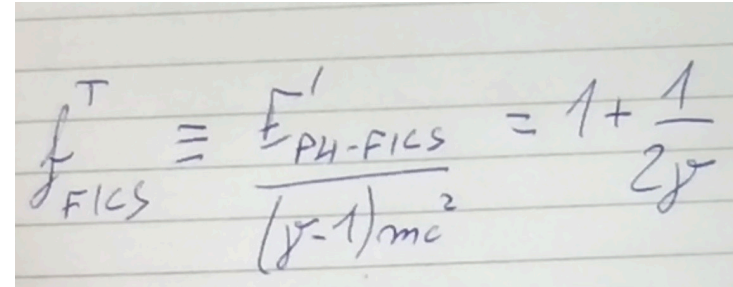 f^T_{FICS} ≡ E'_{PH-FICS} / (γ-1)mc^2 = 1 + 1/2γ